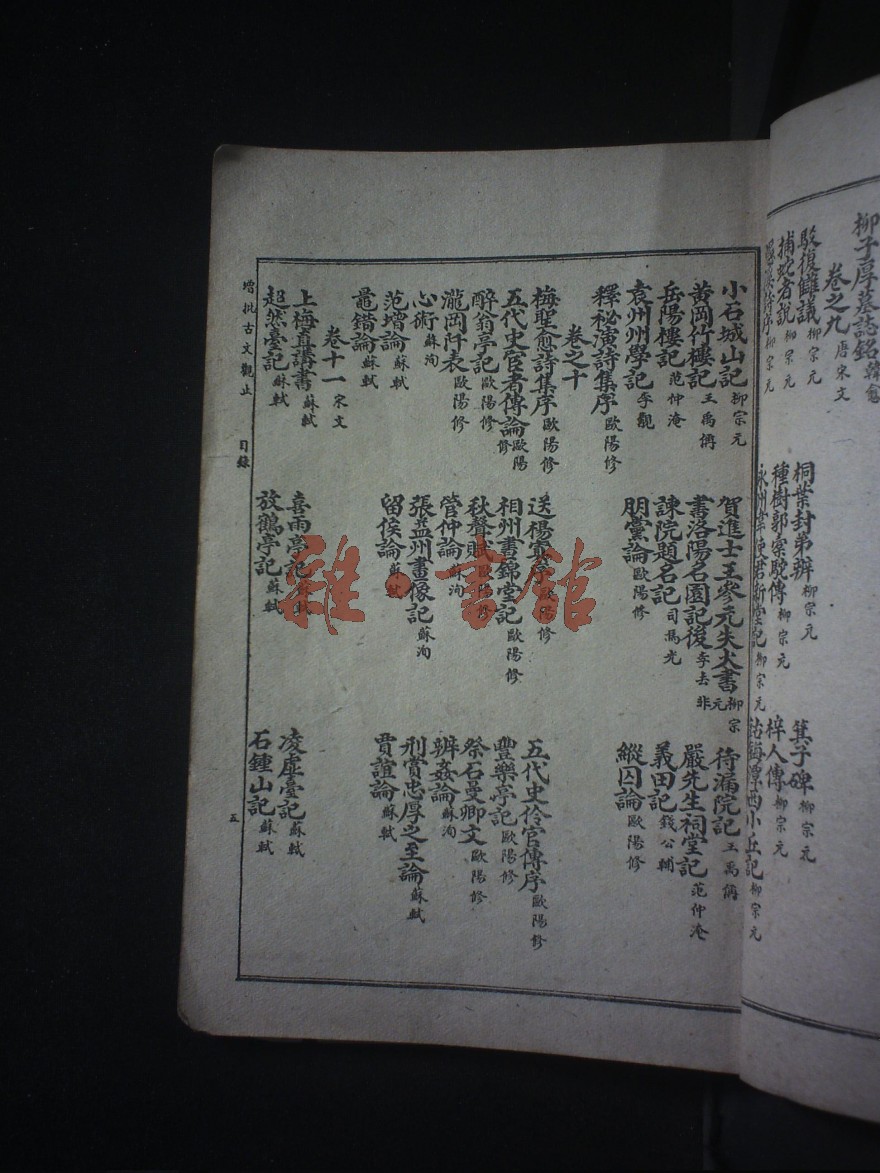 柳子厚墓誌銘 韓愈
卷之九 唐宋文
駁復讎議 柳宗元 桐葉封弟辨 柳宗元 箕子碑 柳宗元
捕蛇者說 柳宗元 種樹郭橐駝傳 柳宗元 梓人傳 柳宗元
愚溪詩序 柳宗元 永州韋使君新堂記 柳宗元 鈷鉧潭西小丘記 柳宗元
小石城山記 柳宗元 賀進士王參元失火書 柳宗元 待漏院記 王禹偁
黃岡竹樓記 王禹偁 書洛陽名園記後 李去非 嚴先生祠堂記 范仲淹
岳陽樓記 范仲淹 諫院題名記 司馬光 義田記 錢公輔
袁州州學記 李覯 朋黨論 歐陽修 縱囚論 歐陽修
釋秘演詩集序 歐陽修
卷之十
梅聖俞詩集序 歐陽修 送楊寘序 歐陽修 五代史伶官傳序 歐陽修
五代史宦者傳論 歐陽修 相州晝錦堂記 歐陽修 豐樂亭記 歐陽修
醉翁亭記 歐陽修 秋聲賦 歐陽修 祭石曼卿文 歐陽修
瀧岡阡表 歐陽修 管仲論 蘇洵 辨姦論 蘇洵
心術 蘇洵 張益州畫像記 蘇洵 刑賞忠厚之至論 蘇軾
范增論 蘇軾 留侯論 蘇軾 賈誼論 蘇軾
鼂錯論 蘇軾
卷十一 宋文
上梅直講書 蘇軾 喜雨亭記 蘇軾 凌虛臺記 蘇軾
超然臺記 蘇軾 放鶴亭記 蘇軾 石鍾山記 蘇軾
增批古文觀止 目錄 五
雜·書館